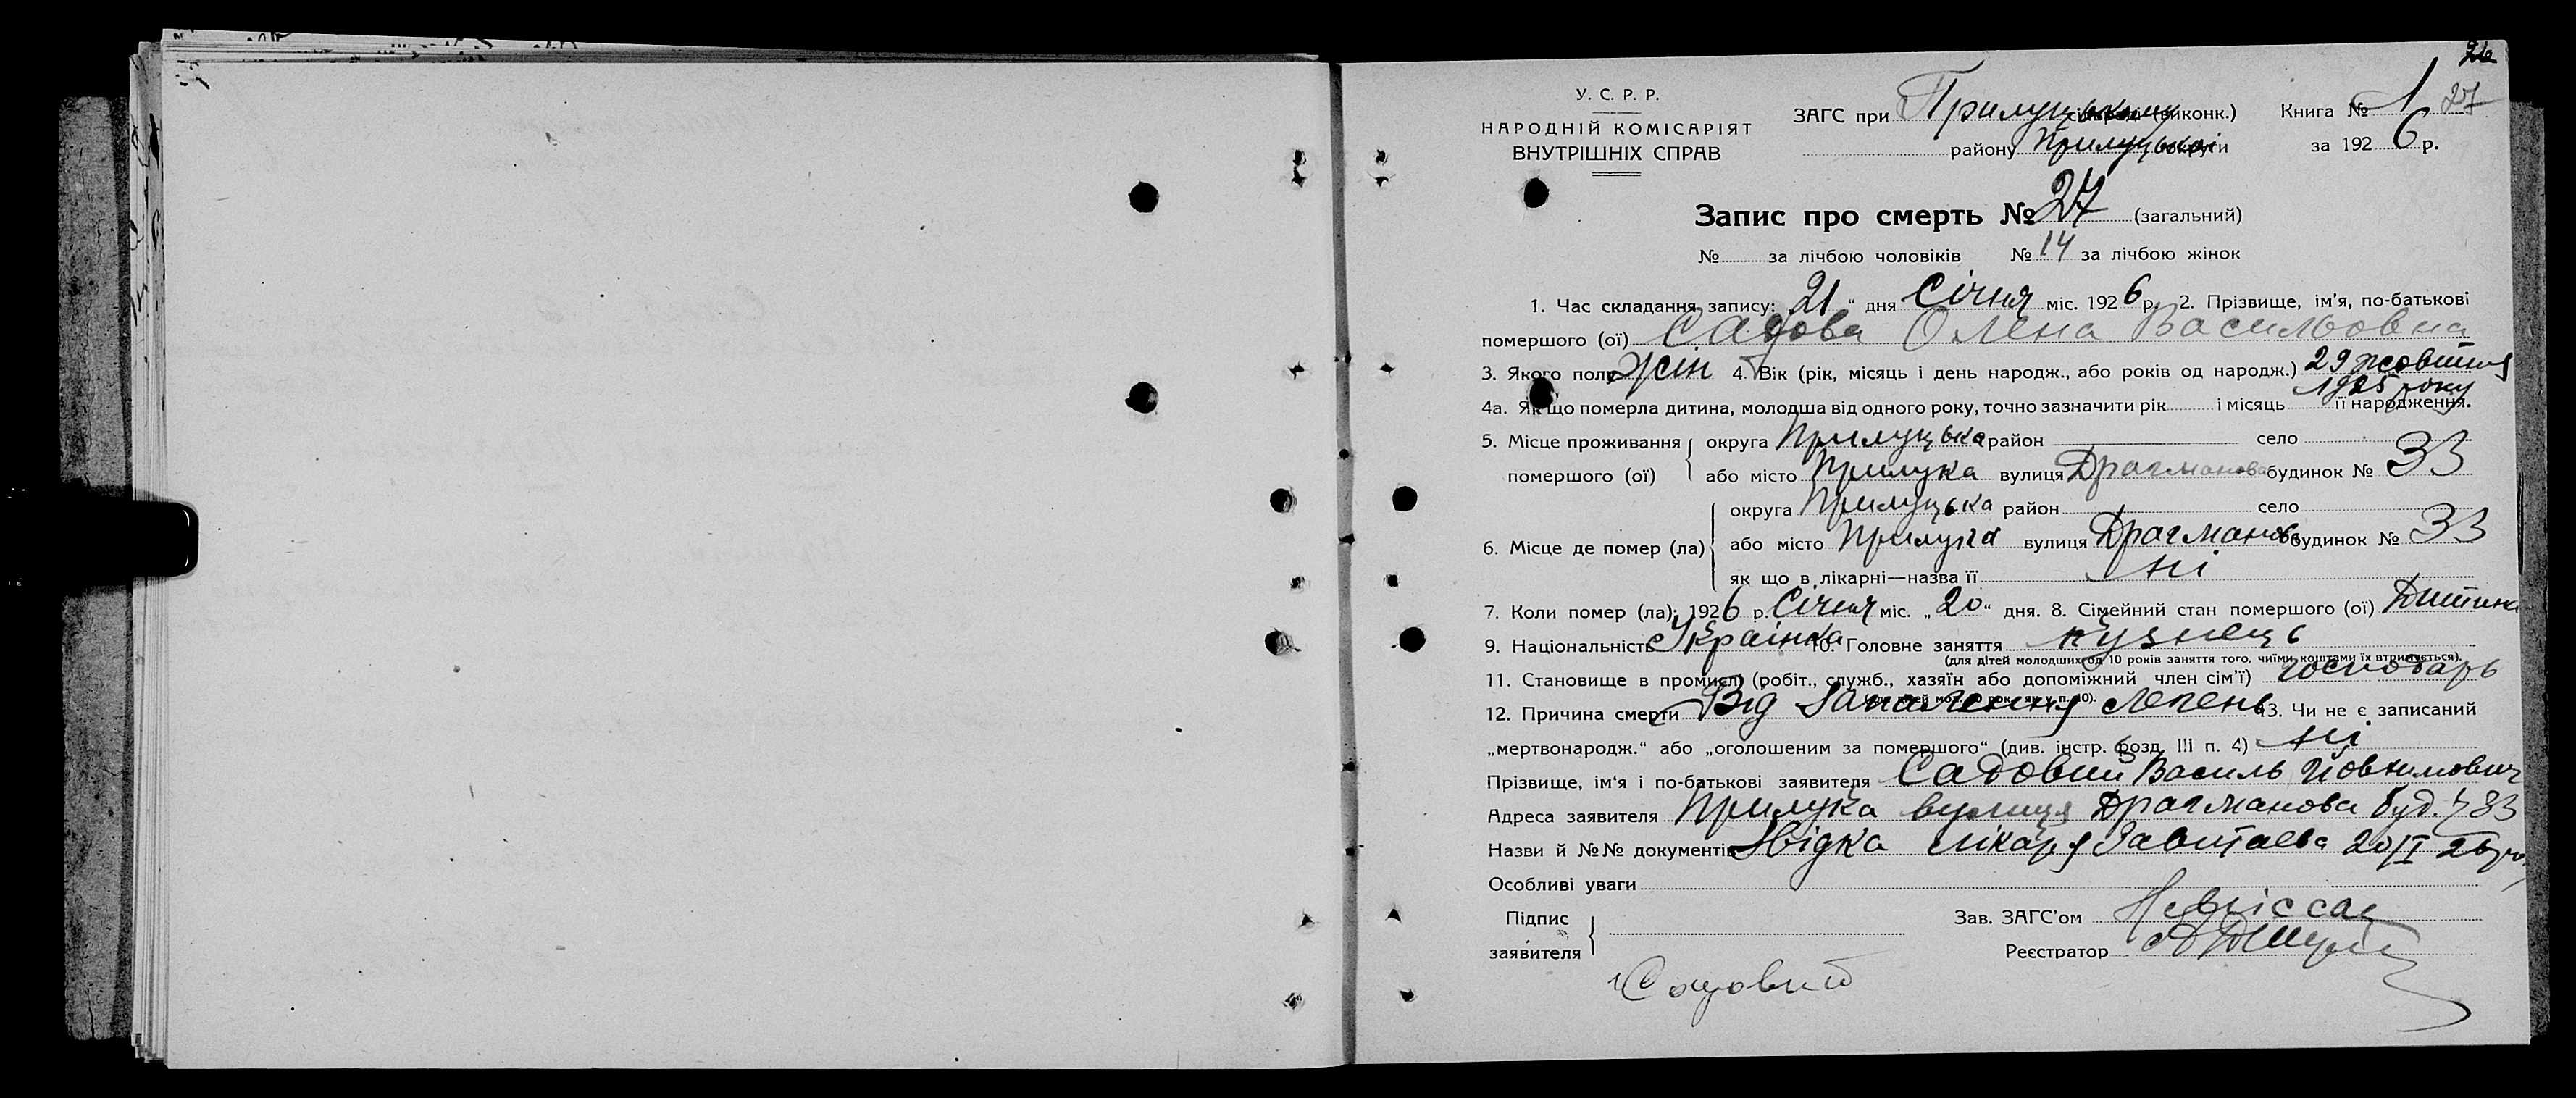 26
У. С. Р. Р.
НАРОДНІЙ КОМІСАРІЯТ
ВНУТРІШНІХ СПРАВ
ЗАГС при Прилуцькому виконк.)
району Прилуцької округи
Книга № 1 27
за 1926 р.
Запис про смерть № 27 (загальний)
№ за лічбою чоловіків № 14 за лічбою жінок
1. Час складання запису: 21 " дня Січня міс. 1926 р. 2. Прізвище, ім'я, по-батькові
помершого (ої) Садова Олена Васильовна
3. Якого полу жін 4. Вік (рік, місяць і день народж., або років од народж.) 29 жовтня
1925 року
4а. Як що померла дитина, молодша від одного року, точно зазначити рік і місяць її народження.
5. Місце проживання округа Прилуцька район село
помершого (ої) або місто Прилука вулиця Драгманова будинок № 33
округа Прилуцька район село
6. Місце де помер (ла) або місто Прилука вулиця Драгманова будинок № 33
як що в лікарні—назва її ні
7. Коли помер (ла): 1926 р. Січня міс. „20" дня. 8. Сімейний стан помершого (ої) Дитина
9. Національність Українка 10. Головне заняття кузнець
(для дітей молодших од 10 років заняття того, чиїми коштами їх втримується).
11. Становище в промислі (робіт., служб., хазяїн або допоміжний член сім'ї) господарь
12. Причина смерти Від Запалення легень 13. Чи не є записаний
„мертвонародж." або „оголошеним за помершого" (див. інстр. розд. III п. 4) ні
Прізвище, ім'я і по-батькові заявителя Садовий Василь
Адреса заявителя Прилука вулиця Драгманова буд. 33
Назви й №№ документів Звідка лікаря 20/I 26
Особливі уваги
Підпис
заявителя
Зав. ЗАГС'ом
Реєстратор
Садовий